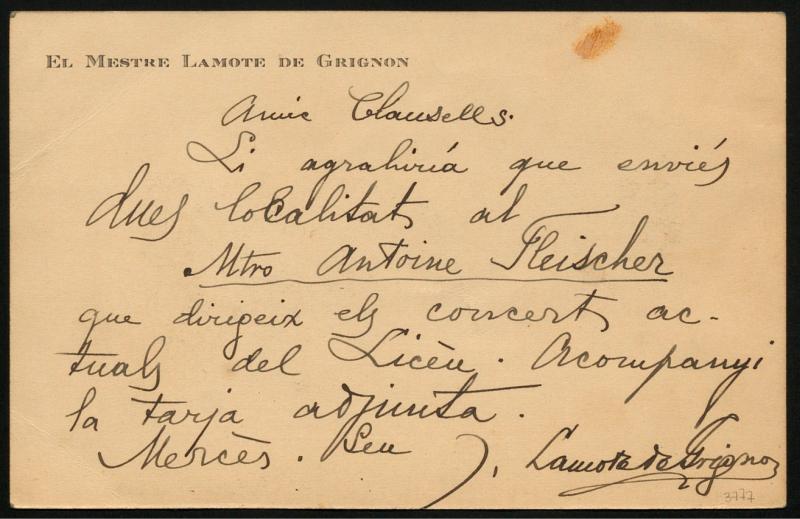 El Mestre Lamote de Grignon
Amic Clausells.
Li agrahiría que enviés
dues localitats al
Mtro Antoine Fleischer
que dirigeix els concerts ac-
tuals del Licèu. Acompanyi
la tarja adjunta.
Mercès. Seu
J. Lamote de Grignon
3777